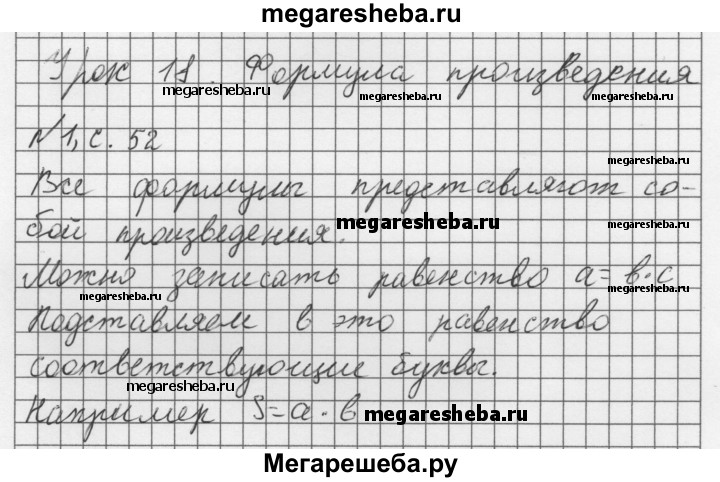 megaresheba.ru
Урок 18. Формула произведения
megaresheba.ru megaresheba.ru megaresheba.ru
№1, с. 52
megaresheba.ru
Все формулы представляют со-
бой произведения.
megaresheba.ru megaresheba.ru
Можно записать равенство a = b·c
megaresheba.ru megaresheba.ru
Подставляем в это равенство
соответствующие буквы.
megaresheba.ru
Например S = a · b
megaresheba.ru
Мегарешеба.ру